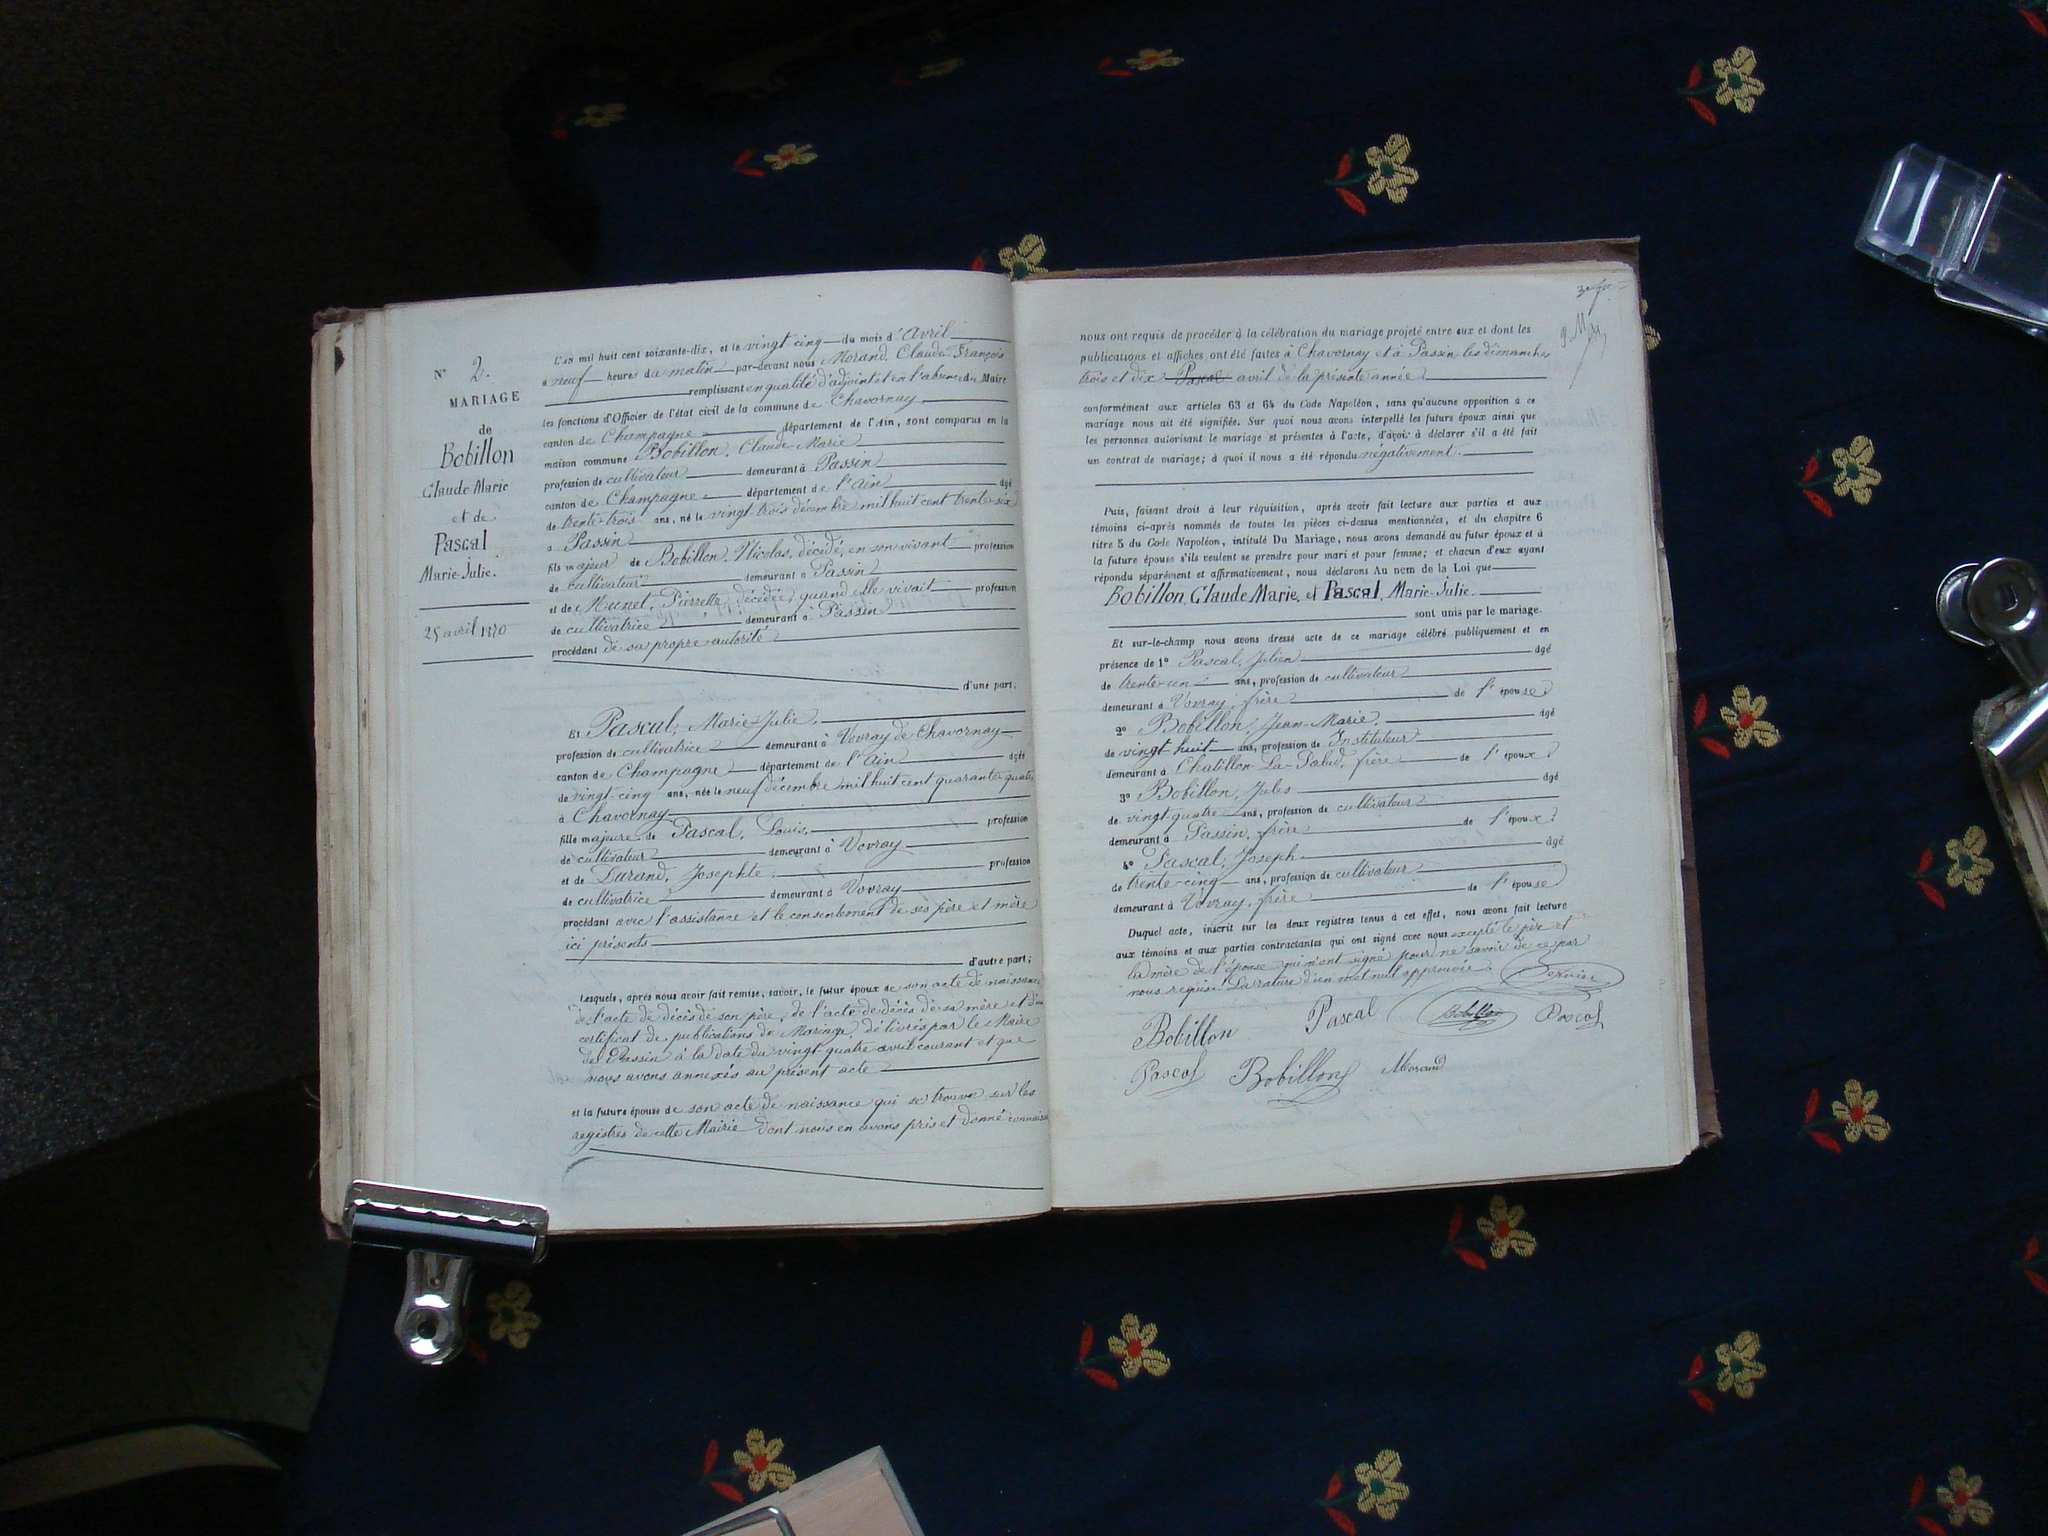 N° 2.
MARIAGE
de
Bobillon
Claude-Marie
et de
Pascal
Marie-Julie.
25 avril 1870
L'an mil huit cent soixante-dix, et le vingt cinq du mois d'Avril
à neuf heures du matin par-devant nous Morand, Claude-François
remplissant en qualité d'adjoint et en l'absence du Maire
les fonctions d'Officier de l'état civil de la commune de Chavornay
canton de Champagne département de l'Ain, sont comparus en la
maison commune Bobillon, Claude-Marie
profession de cultivateur demeurant à Passin
canton de Champagne département de l'Ain âgé
de trente-trois ans, né le vingt-trois décembre mil huit cent trente-six
à Passin
fils majeur de Bobillon, Nicolas, décédé, en son vivant profession
de cultivateur demeurant à Passin
et de Munet, Pierrette, décédée, quand elle vivait profession
de cultivatrice demeurant à Passin
procédant de sa propre autorité
d'une part;
Et Pascal, Marie-Julie,
profession de cultivatrice demeurant à Vovray de Chavornay
canton de Champagne département de l'Ain âgée
de vingt-cinq ans, née le neuf décembre mil huit cent quarante-quatre
à Chavornay
fille majeure de Pascal, Louis, profession
de cultivateur demeurant à Vovray
et de Durand, Josephte profession
de cultivatrice demeurant à Vovray
procédant avec l'assistance et le consentement de ses père et mère
ici présents
d'autre part;
Lesquels, après nous avoir fait remise, savoir, le futur époux de son acte de naissance
de l'acte de décès de son père, de l'acte de décès de sa mère et d'un
certificat de publications de Mariage, délivrés par le Maire
de Passin à la date du vingt-quatre avril courant et que
nous avons annexés au présent acte
et la future épouse de son acte de naissance qui se trouve sur les
registres de cette Mairie dont nous en avons pris et donné connaiss
nous ont requis de procéder à la célébration du mariage projeté entre eux et dont les
publications et affiches ont été faites à Chavornay et à Passin les dimanches
trois et dix Pascal avril de la présente année
conformément aux articles 63 et 64 du Code Napoléon, sans qu'aucune opposition à ce
mariage nous ait été signifiée. Sur quoi nous avons interpellé les futurs époux ainsi que
les personnes autorisant le mariage et présentes à l'acte, d'avoir à déclarer s'il a été fait
un contrat de mariage; à quoi il nous a été répondu négativement.
Puis, faisant droit à leur réquisition, après avoir fait lecture aux parties et aux
témoins ci-après nommés de toutes les pièces ci-dessus mentionnées, et du chapitre 6
titre 5 du Code Napoléon, intitulé Du Mariage, nous avons demandé au futur époux et à
la future épouse s'ils veulent se prendre pour mari et pour femme; et chacun d'eux ayant
répondu séparément et affirmativement, nous déclarons Au nom de la Loi que
Bobillon, Claude-Marie, et Pascal, Marie-Julie.
sont unis par le mariage.
Et sur-le-champ nous avons dressé acte de ce mariage célébré publiquement et en
présence de 1° Pascal, Julien âgé
de trente-un ans, profession de cultivateur
demeurant à Vovray, frère de l'épouse
2° Bobillon, Jean-Marie, âgé
de vingt huit ans, profession de Instituteur
demeurant à Chatillon-La-Palud, frère de l'époux
3° Bobillon, Jules âgé
de vingt-quatre ans, profession de cultivateur
demeurant à Passin, frère de l'époux
4° Pascal, Joseph âgé
de trente-cinq ans, profession de cultivateur
demeurant à Vovray, frère de l'épouse
Duquel acte, inscrit sur les deux registres tenus à cet effet, nous avons fait lecture
aux témoins et aux parties contractantes qui ont signé avec nous excepté le père et
la mère de l'épouse qui n'ont signé pour ne savoir de ce par
nous requis. La rature d'un mot nul approuvée.
Bobillon Pascal Bobillon Pascal
Pascal Bobillon Morand